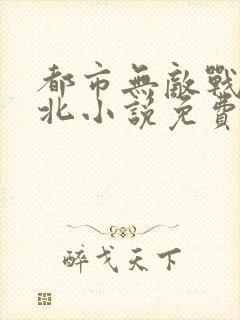 都市無敵戰
北小說免費
醉戈天下